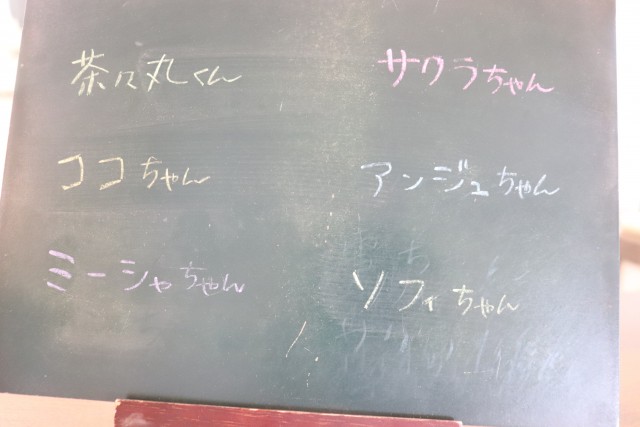 茶々丸くん
サクラちゃん
ココちゃん
アンジュちゃん
ミーシャちゃん
ソフィちゃん